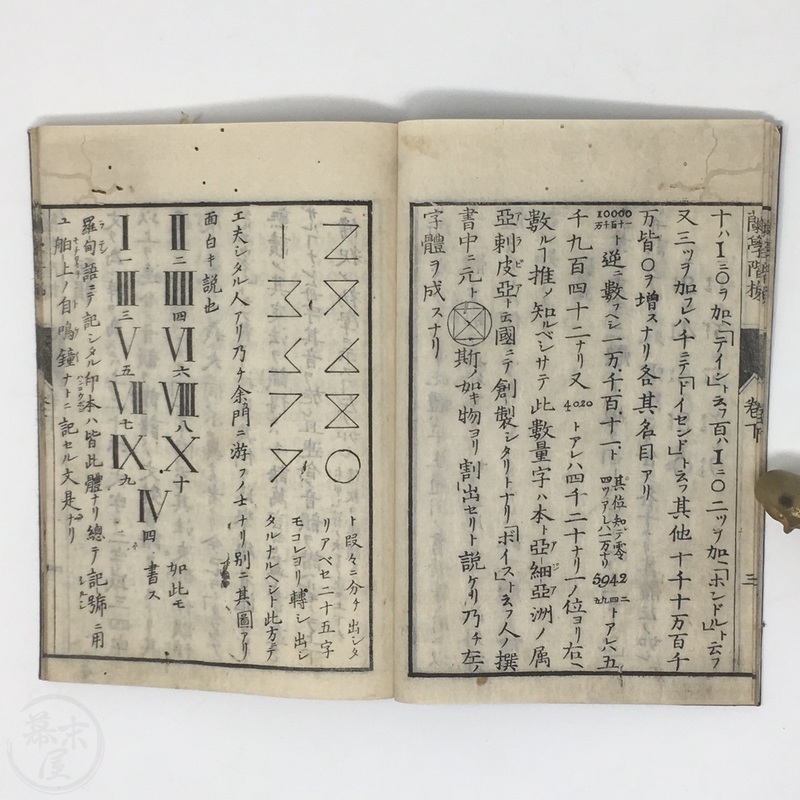 蘭學階梯 卷下 三
十ハI三〇ヲ加ヘ「テイン」ト云フ百ハI三〇二ツヲ加ヘ「ホンドルト」云フ
又三ツヲ加フレハ千ニテ「ドイセンド」ト云フ其他十千十万百千
万皆〇ヲ增スナリ各其名目アリ
10000ト逆ニ數フヘシ一万千百十一ト
其位知テ零四ツアレハ一万ナリ 5942トアレハ五
千九百四十二ナリ又4020トアレハ四千二十ナリ一ノ位ヨリ右ヘ
數ルヿ推ノ知ルベシサテ此數量字ハ本ト亞細亞洲ノ属
亞剌皮亞ト云國ニテ創製シタリトナリ「ボイス」ト云フ人ノ撰
書中ニ元ト 斯ノ如キ物ヨリ割出セリト説ケリ乃チ左ノ
字體ヲ成スナリ
ト段々ニ分チ出シタ
リアベセ二十五字
モコレヨリ轉シ出シ
タルナルヘシト此方ニテ
工夫シタル人アリ乃チ余門ニ游フノ士ナリ別ニ其圖アリ
面白キ説也
II二 IIII四 VI六 VIII八 X十 如此モ
I一 III三 V五 VII七 IX九 IV四 書ス
羅甸語ニテ記シタル印本ハ皆此體ナリ總テ記號ニ用
ユ舶上ノ自鳴鐘ナトニ記セル文是ナリ
幕末屋